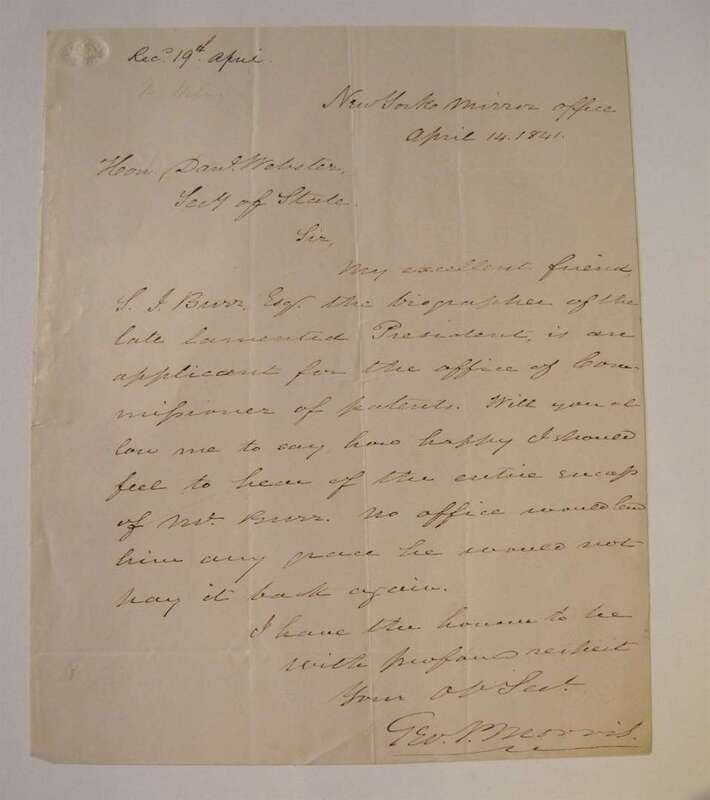 Rec.d 19th April.
New York Mirror office
April 14. 1841.
Hon. Danl. Webster,
Secy of State.
Sir,
My excellent friend
S. J. Burr, Esq. the biographer of the
late lamented President, is an
applicant for the office of Com-
missioner of patents. Will you al-
low me to say how happy I should
feel to hear of the entire success
of Mr. Burr. No office would lend
him any grace he would not
pay it back again.
I have the honour to be
with profound respect
Your Obt Sevt.
Geo. P. Morris.